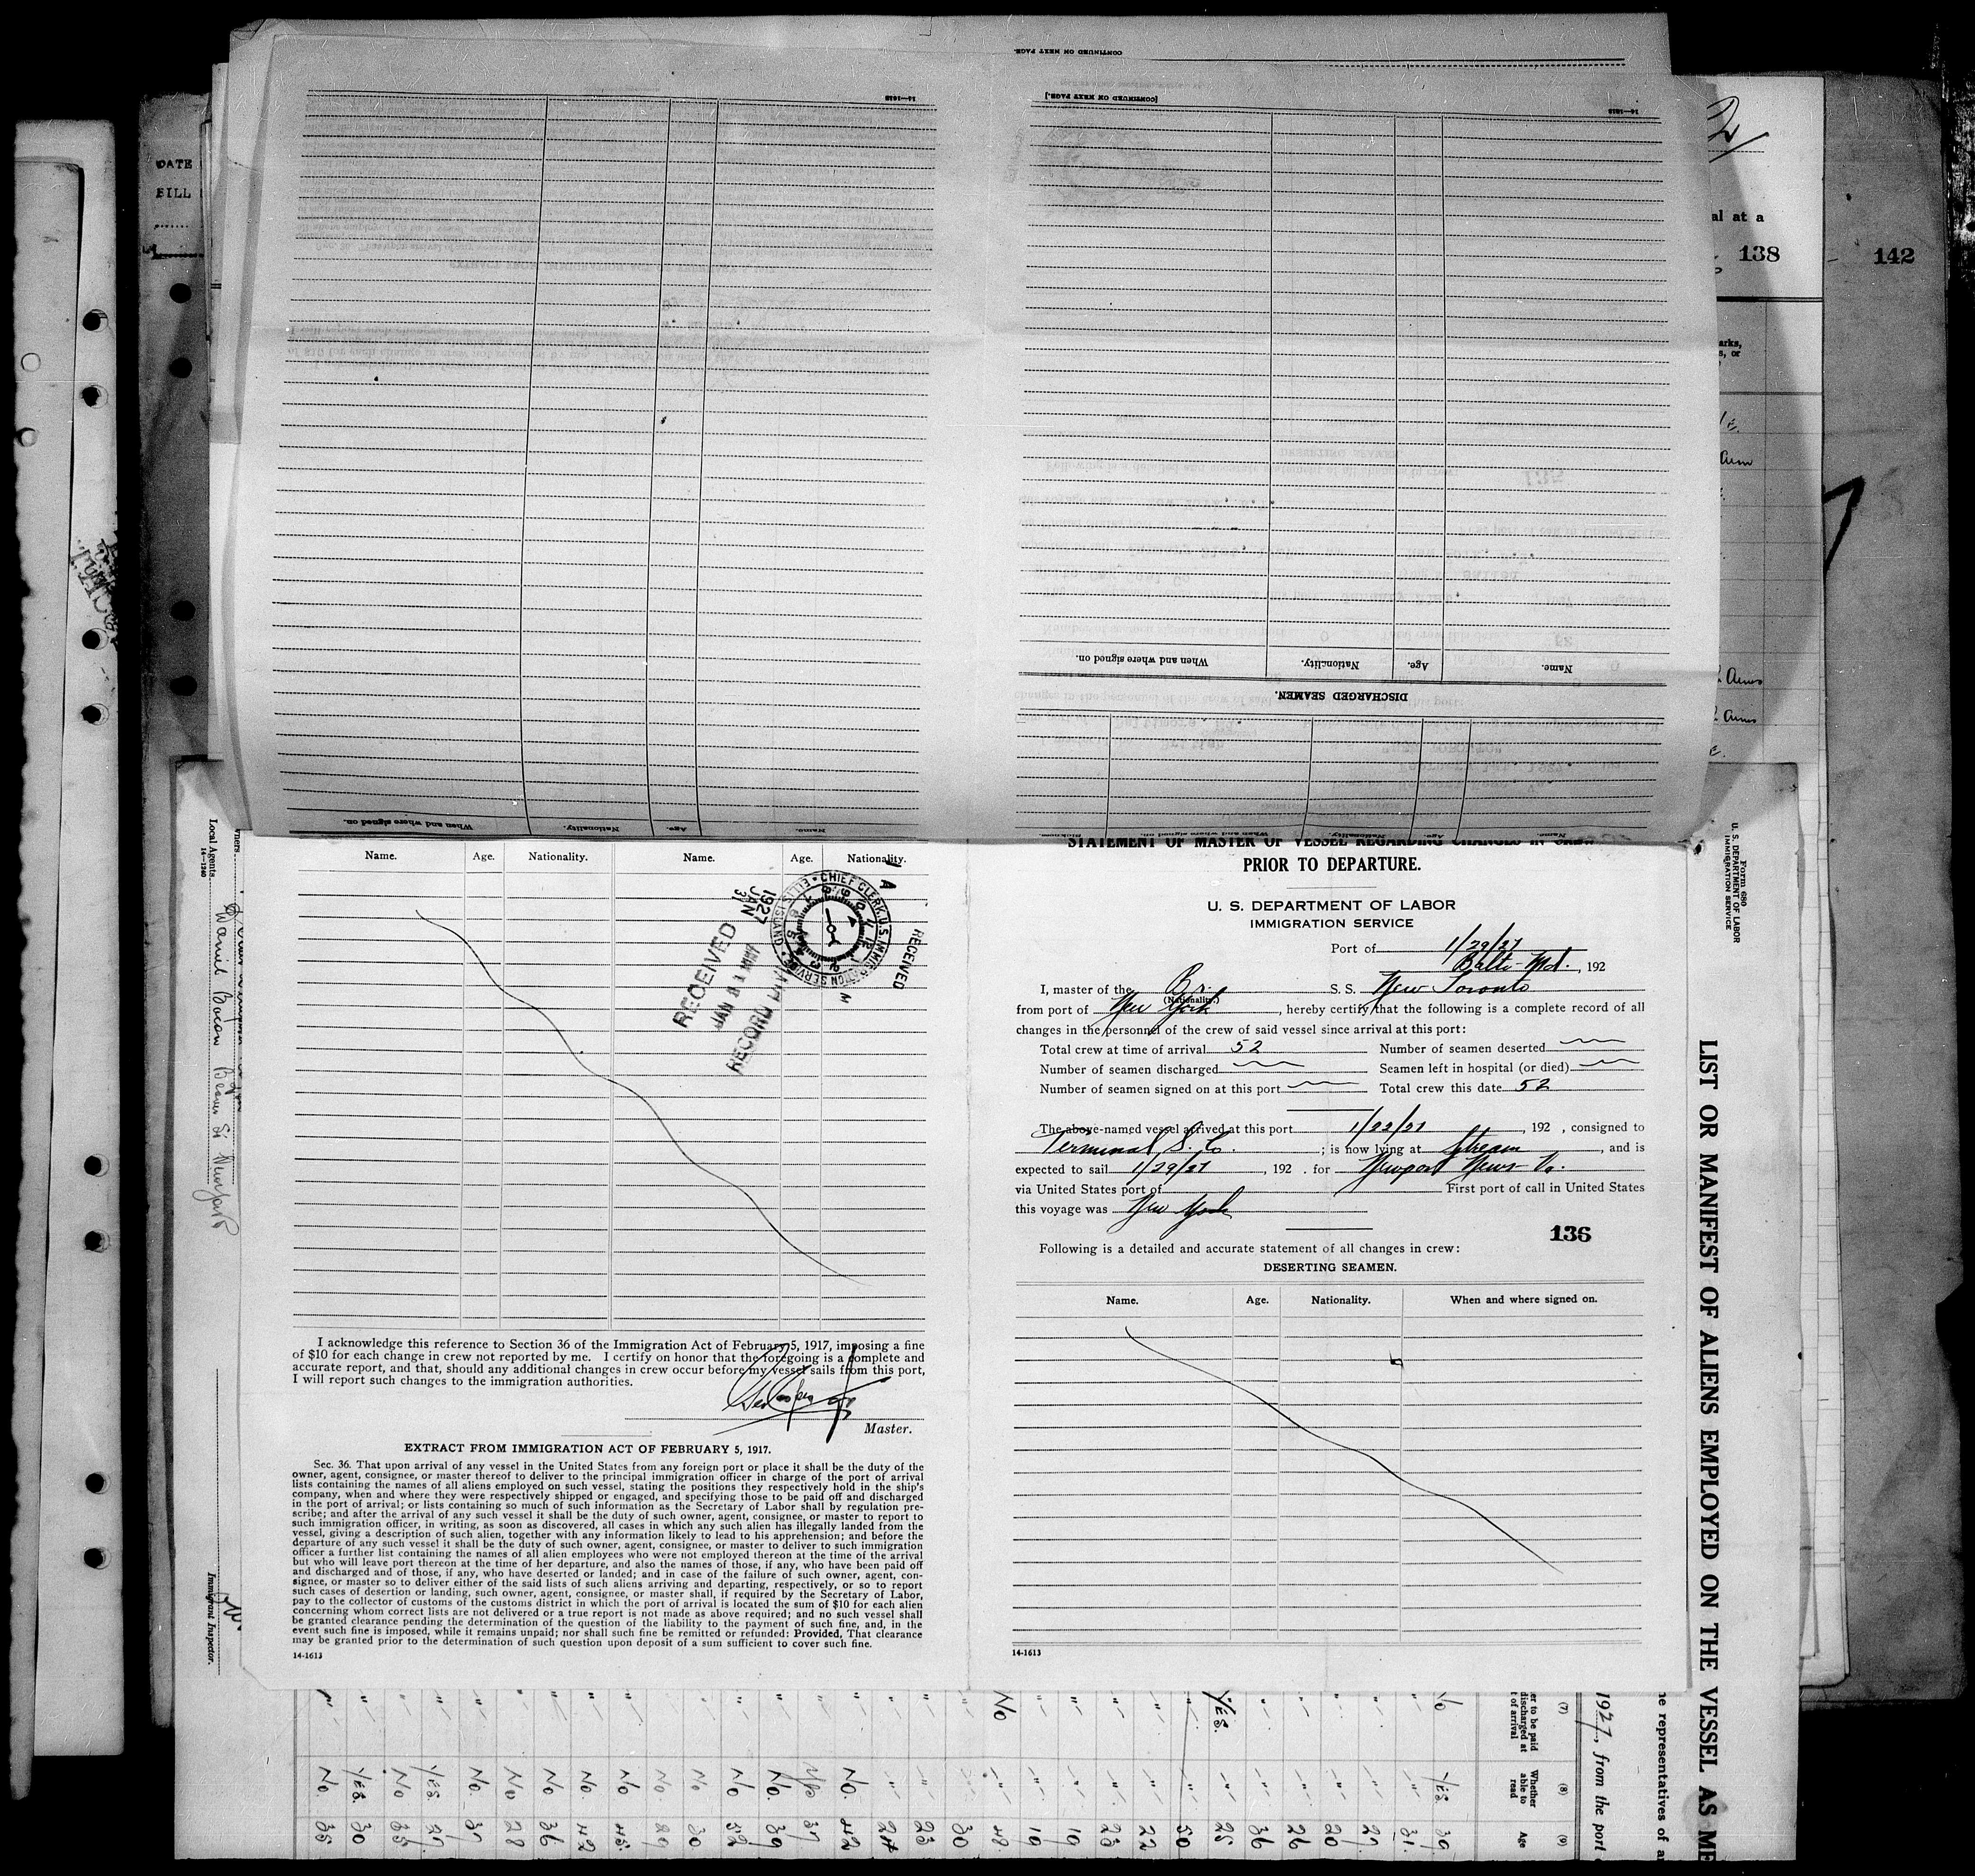 CONTINUED ON NEXT PAGE.
14—1613
[CONTINUED ON NEXT PAGE.]
14—1613
When and where signed on.
Nationality.
Age.
Name.
DISCHARGED SEAMEN.
When and where signed on.
Nationality.
Age.
Name.
DATE
FILL
al at a
138
142
arks,
s, or
Name.
Age.
Nationality.
Name.
Age.
Nationality.
1927
JAN
31
CHIEF CLERK, U.S. IMMIGRATION SERVICE • ELLIS ISLAND •
RECEIVED
A
M
RECEIVED
JAN 31 1927
RECORD DIV
I acknowledge this reference to Section 36 of the Immigration Act of February 5, 1917, imposing a fine
of $10 for each change in crew not reported by me. I certify on honor that the foregoing is a complete and
accurate report, and that, should any additional changes in crew occur before my vessel sails from this port,
I will report such changes to the immigration authorities.
Master.
EXTRACT FROM IMMIGRATION ACT OF FEBRUARY 5, 1917.
Sec. 36. That upon arrival of any vessel in the United States from any foreign port or place it shall be the duty of the
owner, agent, consignee, or master thereof to deliver to the principal immigration officer in charge of the port of arrival
lists containing the names of all aliens employed on such vessel, stating the positions they respectively hold in the ship's
company, when and where they were respectively shipped or engaged, and specifying those to be paid off and discharged
in the port of arrival; or lists containing so much of such information as the Secretary of Labor shall by regulation pre-
scribe; and after the arrival of any such vessel it shall be the duty of such owner, agent, consignee, or master to report to
such immigration officer, in writing, as soon as discovered, all cases in which any such alien has illegally landed from the
vessel, giving a description of such alien, together with any information likely to lead to his apprehension; and before the
departure of any such vessel it shall be the duty of such owner, agent, consignee, or master to deliver to such immigration
officer a further list containing the names of all alien employees who were not employed thereon at the time of the arrival
but who will leave port thereon at the time of her departure, and also the names of those, if any, who have been paid off
and discharged and of those, if any, who have deserted or landed; and in case of the failure of such owner, agent, con-
signee, or master so to deliver either of the said lists of such aliens arriving and departing, respectively, or so to report
such cases of desertion or landing, such owner, agent, consignee, or master shall, if required by the Secretary of Labor,
pay to the collector of customs of the customs district in which the port of arrival is located the sum of $10 for each alien
concerning whom correct lists are not delivered or a true report is not made as above required; and no such vessel shall
be granted clearance pending the determination of the question of the liability to the payment of such fine, and, in the
event such fine is imposed, while it remains unpaid; nor shall such fine be remitted or refunded: Provided, That clearance
may be granted prior to the determination of such question upon deposit of a sum sufficient to cover such fine.
14-1613
STATEMENT OF MASTER OF VESSEL REGARDING CHANGES IN CREW
PRIOR TO DEPARTURE.
U. S. DEPARTMENT OF LABOR
IMMIGRATION SERVICE
Port of 1/29/27
Balto-Md., 192
I, master of the Br. S. S. New Toronto
(Nationality.)
from port of New York, hereby certify that the following is a complete record of all
changes in the personnel of the crew of said vessel since arrival at this port:
Total crew at time of arrival 52 Number of seamen deserted
Number of seamen discharged Seamen left in hospital (or died)
Number of seamen signed on at this port Total crew this date 52
The above-named vessel arrived at this port 1/22/27, 192 , consigned to
Terminal S. Co. ; is now lying at Stream, and is
expected to sail 1/29/27, 192 . for Newport News Va.
via United States port of First port of call in United States
this voyage was New York
136
Following is a detailed and accurate statement of all changes in crew:
DESERTING SEAMEN.
Name.
Age.
Nationality.
When and where signed on.
14-1613
Form 680
U. S. DEPARTMENT OF LABOR
IMMIGRATION SERVICE
LIST OR MANIFEST OF ALIENS EMPLOYED ON THE VESSEL AS ME
he representatives of a
1927, from the port
Local Agents
14—1240
Daniel Bacon Beaver St New York
Immigrant Inspector.
(7)
er to be paid
discharged at
t of arrival
(8)
Whether
able to
read
(9)
Age
No
Yes. 39
31
27
20
26
36
Yes. 25
50
22
23
19
19
No 48
30
23
24
No. 42
37
No. 39
No 52
No 30
No. 29
No 45
No. 42
No 36
No 28
No. 37
Yes. 27
No 35
Yes. 30
No. 35